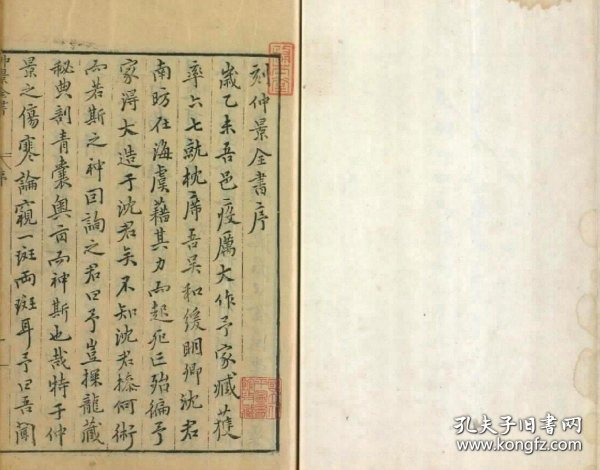 刻仲景全書序
歲乙未吾邑疫厲大作予家臧獲
率六七就枕席吾吳和緩明卿沈君
南昉在海虞藉其力而起死亡殆徧予
家得大造于沈君矣不知沈君操何術
而若斯之神因詢之君曰予豈探龍藏
秘典剖青囊奧旨而神斯也哉特于仲
景之傷寒論窺一斑兩斑耳予曰吾聞
仲景全書
序
孔夫子旧书网
kongfz.com